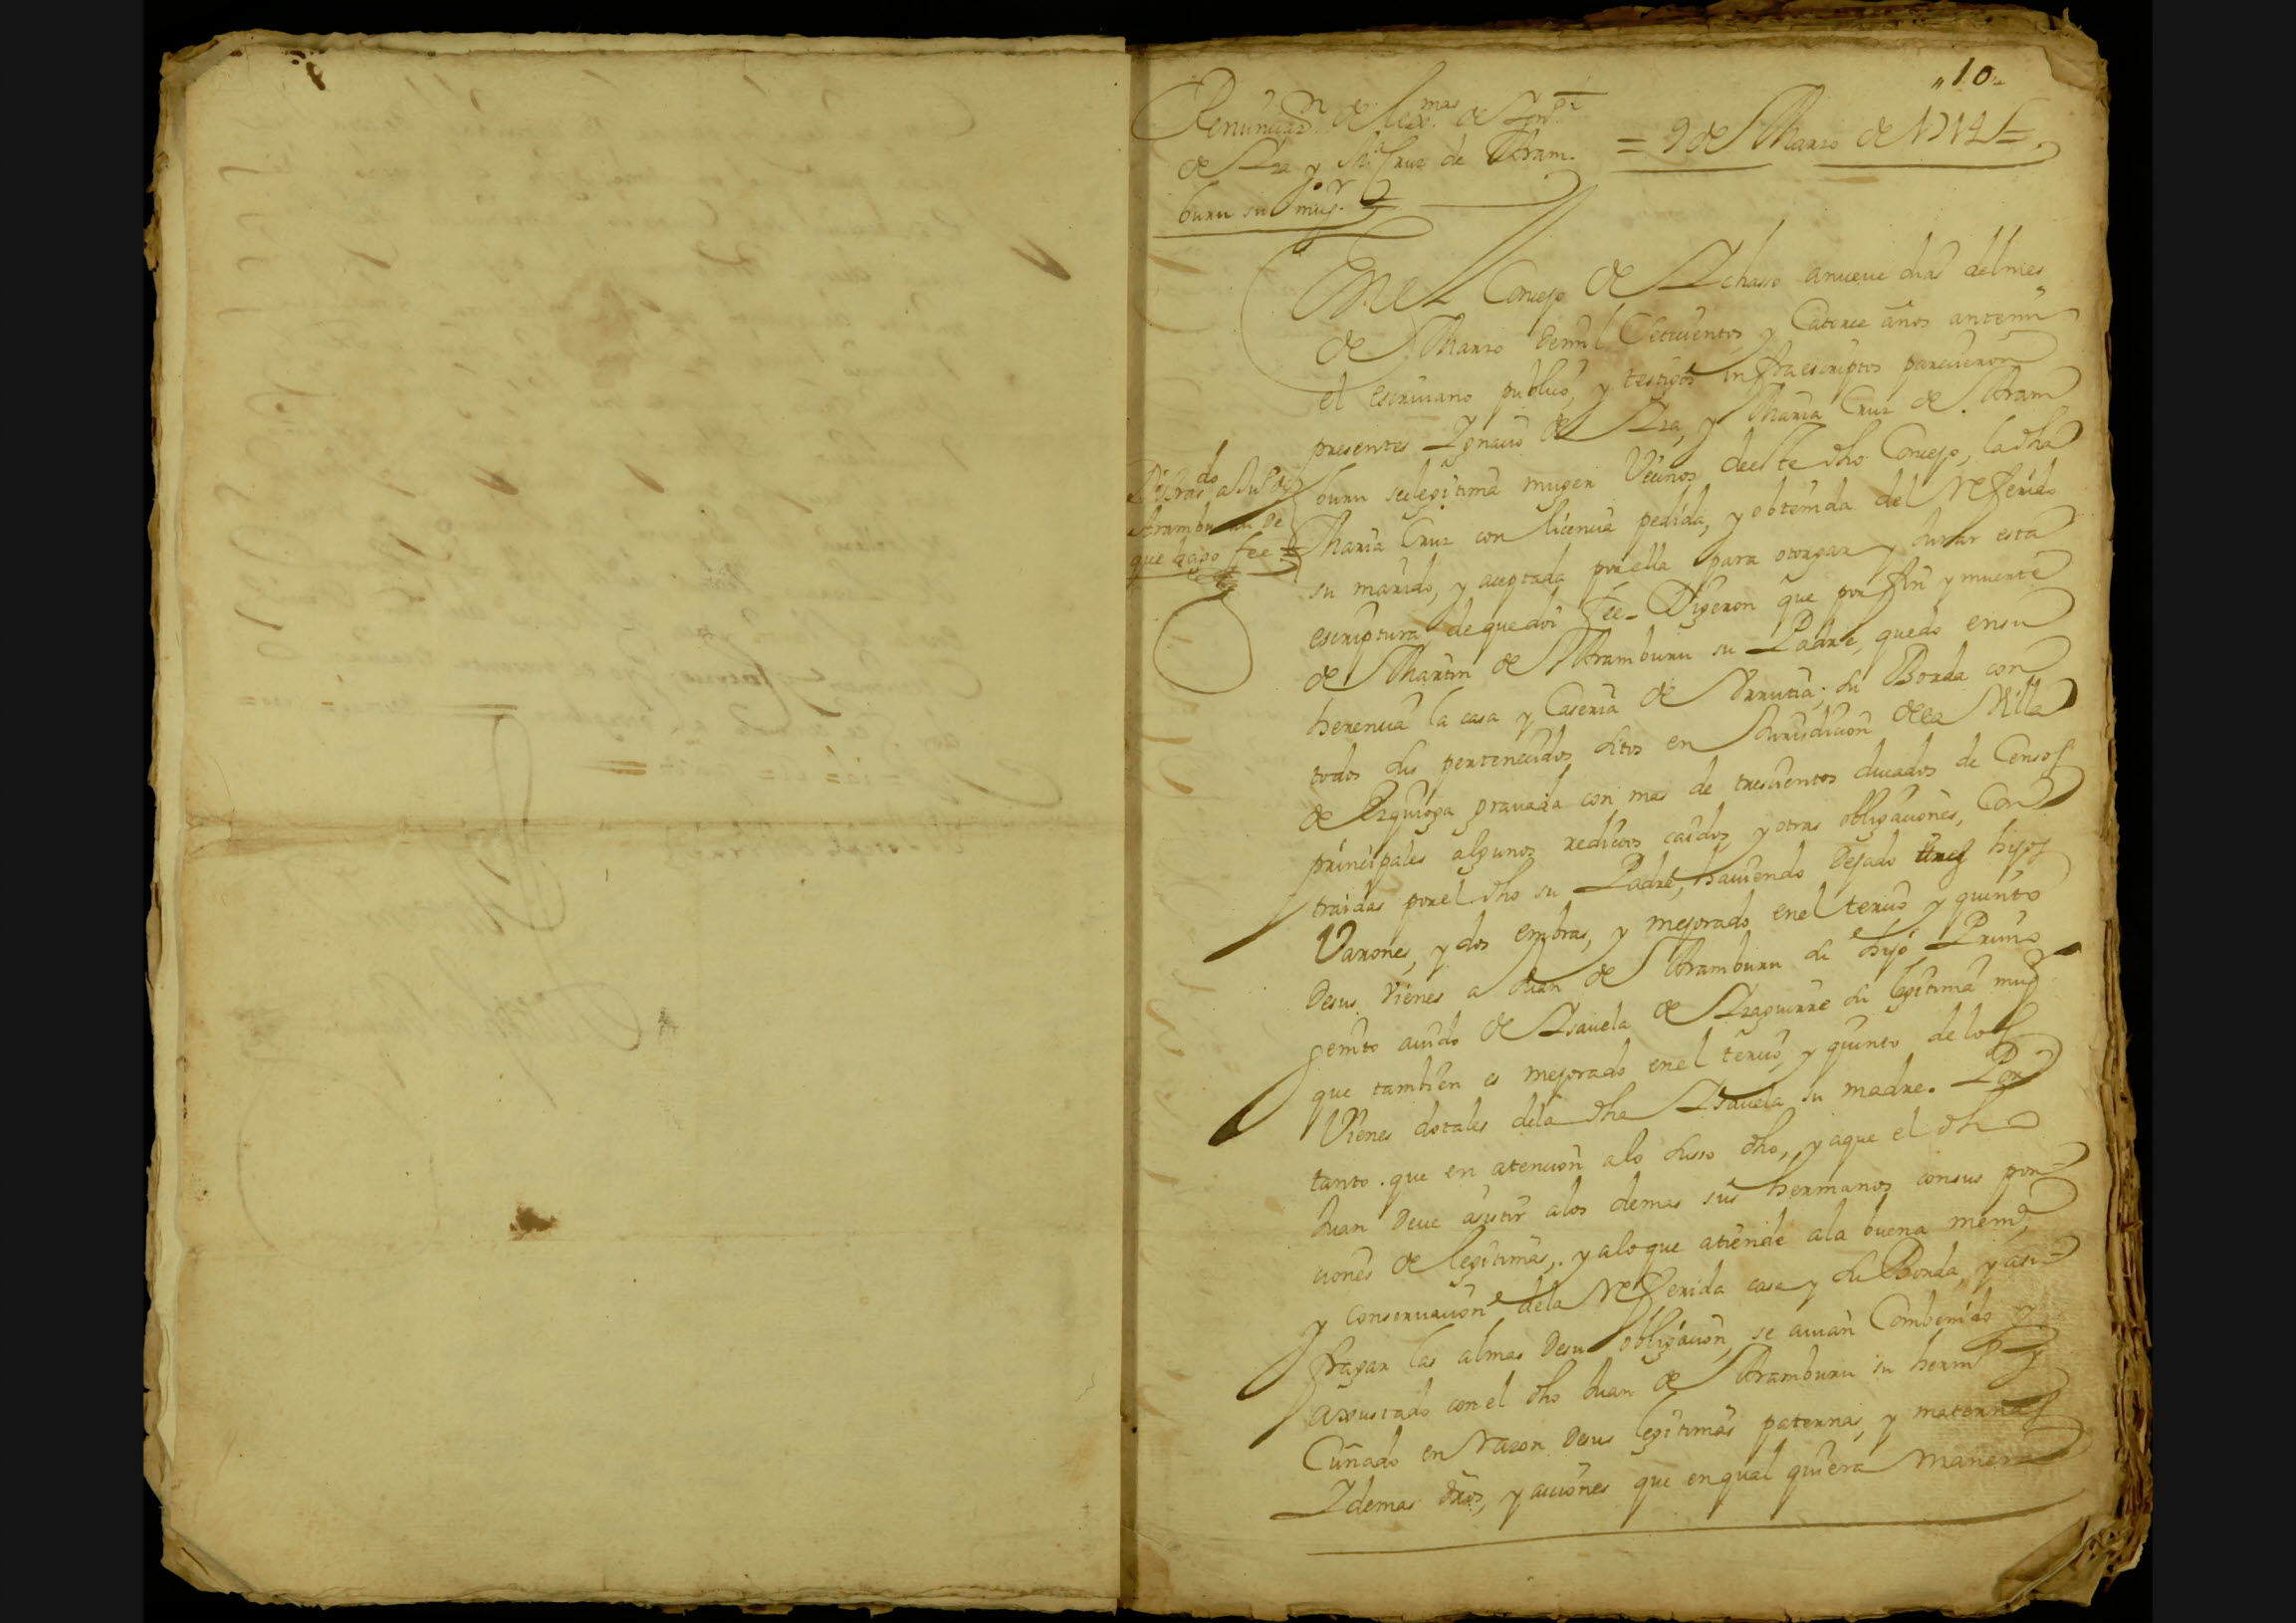 "10"
Renunciaz.n de lex.mas de Ygn.o
de Yza y M.a Cruz de Aram-
buru su mug.r =
= 9 de Marzo de 1714 =
En el Concejo de Ychasso a nueue dias del mes
de Marzo de mil Setecientos y Catorce años antemi
el escriuano publico, y testigos infraescriptos parecieron
presentes Ygnacio de Yza, y Maria Cruz de Aram
buru su legitima muger Vecinos de este dho Concejo, la dha
Maria Cruz con licencia pedida, y obtenida del Referido
su marido, y aceptada por ella para otorgar y Jurar esta
escriptura, de que doi fee - Digeron que por fin y muerte
de Martin de Aramburu su Padre, quedo en su
herencia la casa y Caseria de Urrutia, su Borda con
todos sus pertenecidos sitos en Jurisdicion de la Villa
de Ezquioga grauada con mas de trescientos ducados de Censos
principales algunos reditos caidos, y otras obligaciones, Con
traidas por el dho su Padre, hauiendo Dejado tres hijos
Varones, y dos embras, y mejorado en el tercio, y quinto
de sus Vienes a Juan de Aramburu su hijo Primo
genito auido de Ysauela de Yzaguirre su legitima mug.r
que tambien es mejorado en el tercio, y quinto de los
Vienes dotales dela dha Ysauela su madre. Por
tanto. que en atencion alo susso dho, y aque el dho
Juan Deue asistir alos demas sus hermanos con sus por
ciones de legitimas, y alo que atiende ala buena mem.a
y Conseruacion dela Referida casa y su Borda, y a su
fragar las almas de su obligacion, se auian Combenido y
axustado con el dho Juan de Aramburu su herm.o y
Cuñado en Razon de sus legitimas paternas, y maternas
Y demas dros, y acciones que en qual quiera manera
do
Aramburu de
que hago fee =